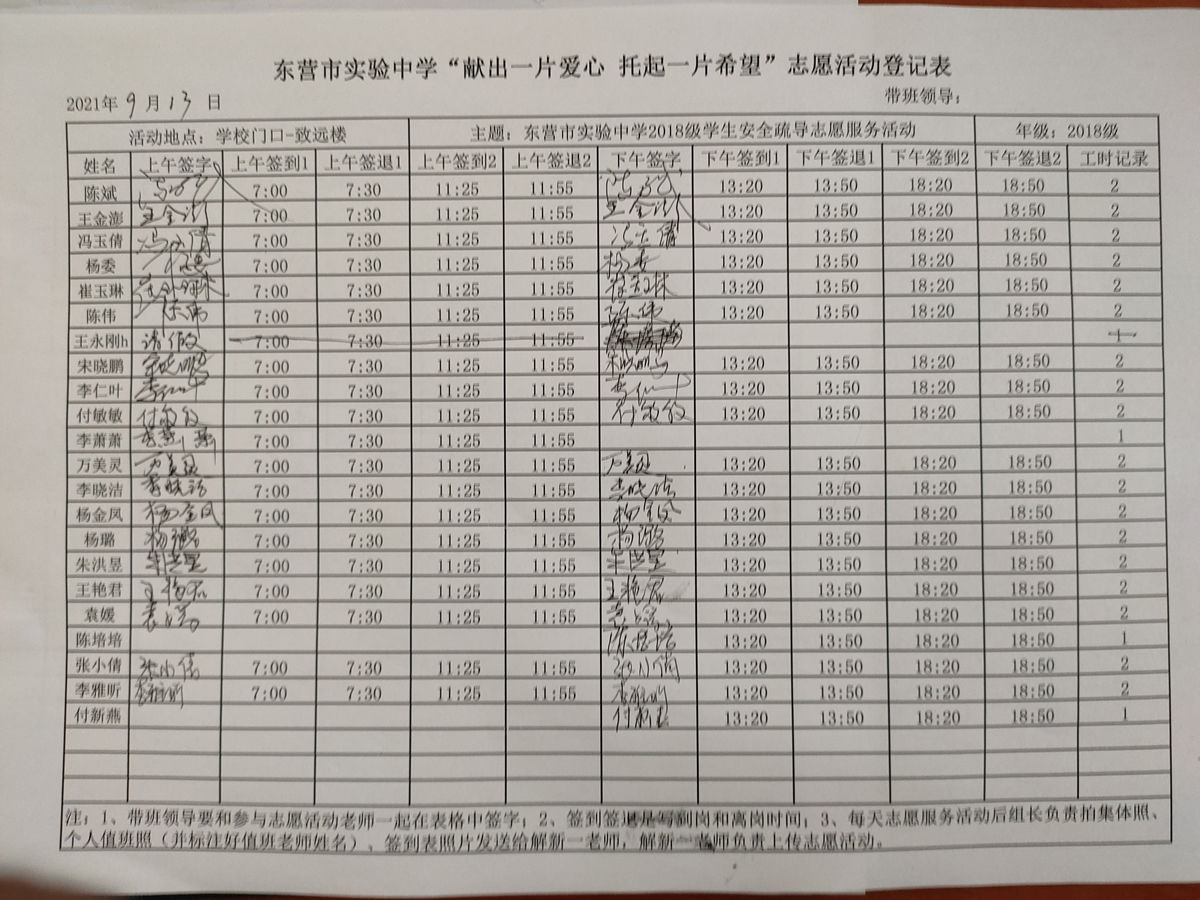 东营市实验中学“献出一片爱心 托起一片希望”志愿活动登记表
2021年 9 月 13 日 带班领导：
活动地点：学校门口-致远楼 主题：东营市实验中学2018级学生安全疏导志愿服务活动 年级：2018级
姓名 上午签字 上午签到1 上午签退1 上午签到2 上午签退2 下午签字 下午签到1 下午签退1 下午签到2 下午签退2 工时记录
陈斌 7:00 7:30 11:25 11:55 13:20 13:50 18:20 18:50 2
王金澎 王金澎 7:00 7:30 11:25 11:55 王金澎 13:20 13:50 18:20 18:50 2
冯玉倩 冯玉倩 7:00 7:30 11:25 11:55 冯玉倩 13:20 13:50 18:20 18:50 2
杨委 杨委 7:00 7:30 11:25 11:55 杨委 13:20 13:50 18:20 18:50 2
崔玉琳 崔玉琳 7:00 7:30 11:25 11:55 崔玉琳 13:20 13:50 18:20 18:50 2
陈伟 陈伟 7:00 7:30 11:25 11:55 陈伟 13:20 13:50 18:20 18:50 2
王永刚h 请假 7:00 7:30 11:25 11:55 1
宋晓鹏 宋晓鹏 7:00 7:30 11:25 11:55 宋晓鹏 13:20 13:50 18:20 18:50 2
李仁叶 李仁叶 7:00 7:30 11:25 11:55 李仁叶 13:20 13:50 18:20 18:50 2
付敏敏 付敏敏 7:00 7:30 11:25 11:55 付敏敏 13:20 13:50 18:20 18:50 2
李萧萧 李萧萧 7:00 7:30 11:25 11:55 1
万美灵 万美灵 7:00 7:30 11:25 11:55 万美灵 13:20 13:50 18:20 18:50 2
李晓洁 李晓洁 7:00 7:30 11:25 11:55 李晓洁 13:20 13:50 18:20 18:50 2
杨金凤 杨金凤 7:00 7:30 11:25 11:55 杨金凤 13:20 13:50 18:20 18:50 2
杨璐 杨璐 7:00 7:30 11:25 11:55 杨璐 13:20 13:50 18:20 18:50 2
朱洪昱 朱洪昱 7:00 7:30 11:25 11:55 朱洪昱 13:20 13:50 18:20 18:50 2
王艳君 王艳君 7:00 7:30 11:25 11:55 王艳君 13:20 13:50 18:20 18:50 2
袁媛 袁媛 7:00 7:30 11:25 11:55 袁媛 13:20 13:50 18:20 18:50 2
陈培培 陈培培 13:20 13:50 18:20 18:50 1
张小倩 张小倩 7:00 7:30 11:25 11:55 张小倩 13:20 13:50 18:20 18:50 2
李雅昕 李雅昕 7:00 7:30 11:25 11:55 李雅昕 13:20 13:50 18:20 18:50 2
付新燕 付新燕 13:20 13:50 18:20 18:50 1
注：1、带班领导要和参与志愿活动老师一起在表格中签字；2、签到签退是写到岗和离岗时间；3、每天志愿服务活动后组长负责拍集体照、
个人值班照（并标注好值班老师姓名）、签到表照片发送给解新一老师，解新一老师负责上传志愿活动。